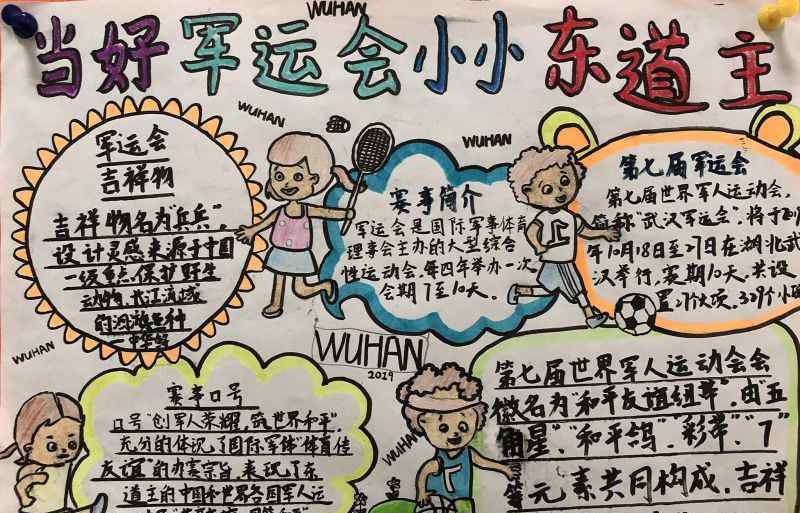 WUHAN
当好军运会小小东道主
WUHAN
WUHAN
军运会
吉祥物
吉祥物名为“兵兵”,
设计灵感来源于中国
一级重点保护野生
动物,长江流域
的洄游鱼种
中华鲟
赛事简介
军运会是国际军事体育
理事会主办的大型综合
性运动会,每四年举办一次
会期7至10天。
第七届军运会
第七届世界军人运动会,
简称“武汉军运会”,将于
年10月18日至27日在湖北武
汉举行,赛期10天,共设
置27个大项,329个小
WUHAN
WUHAN
2019
赛事口号
口号“创军人荣耀,筑世界和平”,
充分的体现了国际军体“体育传
友谊”的办赛宗旨,表现了东
道主的中国和世界各国军人运
WUHAN
第七届世界军人运动会会
徽名为“和平友谊纽带”,由“五
角星”、“和平鸽”、“彩带”、“7”
等元素共同构成,吉祥